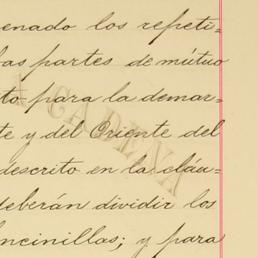 enado los repeti-
las partes de mútuo
to para la demar-
te y del Oriente del
descrito en la cláu-
deberán dividir los
ncinillas; y para
CADENA